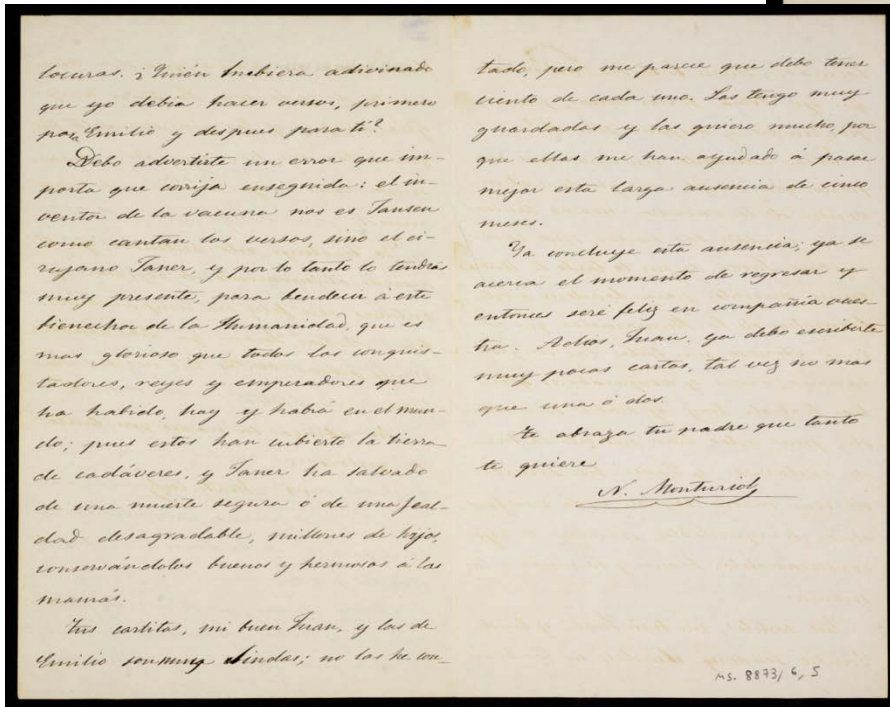 locuras. ¿Quién hubiera adivinado
que yo debia hacer versos, primero
para Emilio y despues para ti?
Debo advertirte un error que im-
porta que corrija enseguida: el in-
ventor de la vacuna nos es Jansen
como cantan los versos, sino el ci-
rujano Janer, y por lo tanto lo tendrás
muy presente, para bendecir á este
bienechor de la Humanidad, que es
mas glorioso que todos los conquis-
tadores, reyes y emperadores que
ha habido, hay y habrá en el mun-
do; pues estos han cubierto la tierra
de cadáveres, y Janer ha salvado
de una muerte segura ó de una feal-
dad desagradable, millones de hijos,
conservándolos buenos y hermosos á las
mamás.
Tus cartitas, mi buen Juan, y las de
Emilio son muy lindas; no las he con-
tado, pero me parece que debo tener
ciento de cada uno. Las tengo muy
guardadas y las quiero mucho, por
que ellas me han ayudado á pasar
mejor esta larga ausencia de cinco
meses.
Ya concluye esta ausencia; ya se
acerca el momento de regresar y
entonces seré feliz en compañia vues-
tra. Adios, Juan. ya debo escribirte
muy pocas cartas, tal vez no mas
que una ó dos.
Te abraza tu padre que tanto
te quiere
N. Monturiol
MS. 8873/6,5